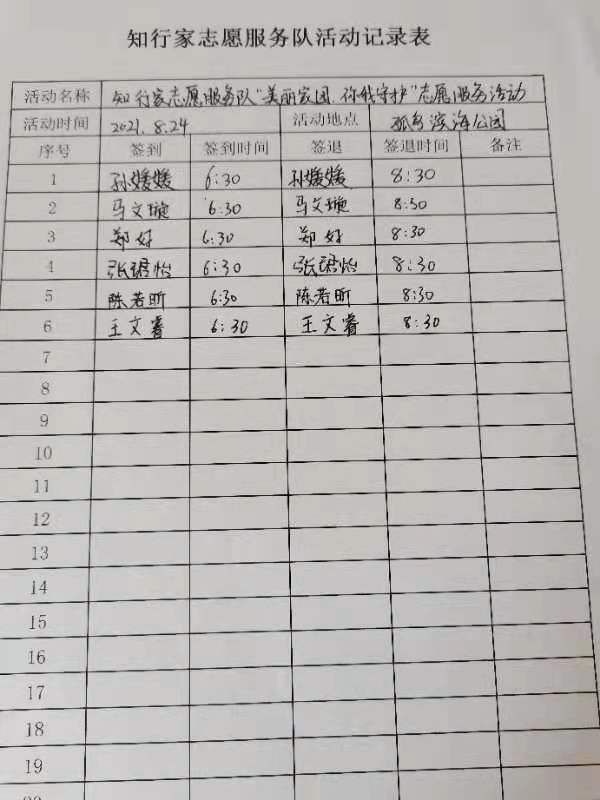 知行家志愿服务队活动记录表
活动名称 知行家志愿服务队“美丽家园,你我守护”志愿服务活动
活动时间 2021.8.24 活动地点 孤岛滨海公园
序号 签到 签到时间 签退 签退时间 备注
1 孙媛媛 6:30 孙媛媛 8:30
2 马文璇 6:30 马文璇 8:30
3 郑好 6:30 郑好 8:30
4 张珺怡 6:30 张珺怡 8:30
5 陈若昕 6:30 陈若昕 8:30
6 王文睿 6:30 王文睿 8:30
7
8
9
10
11
12
13
14
15
16
17
18
19